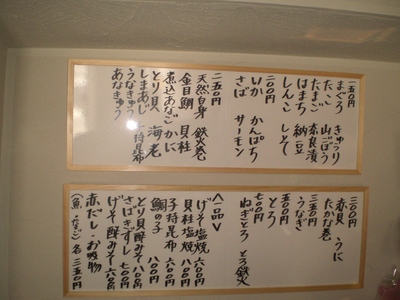 一五〇円
まぐろ きゅうり
たこ 山ごぼう
たまご 奈良漬
はまち 納豆
しんこ しそ
二〇〇円
いか かんぱち
さば サーモン
二五〇円
天然白身 鉄火巻
金目鯛 貝柱
煮込あなご かに
とり貝 海老
しまあじ 子持昆布
うなきゅう
あなきゅう
三〇〇円
赤貝・うに
たかな巻
うなぎ
五〇〇円
とろ
七〇〇円
ねぎとろ とろ鉄火
〈一品〉
げそ塩焼 六〇〇円
貝柱塩焼 八〇〇円
子持昆布 六〇〇円
鯛の子
とり貝酢みそ 八〇〇円
さばきずし 七〇〇円
げそ酢みそ 六〇〇円
赤だし・お吸物